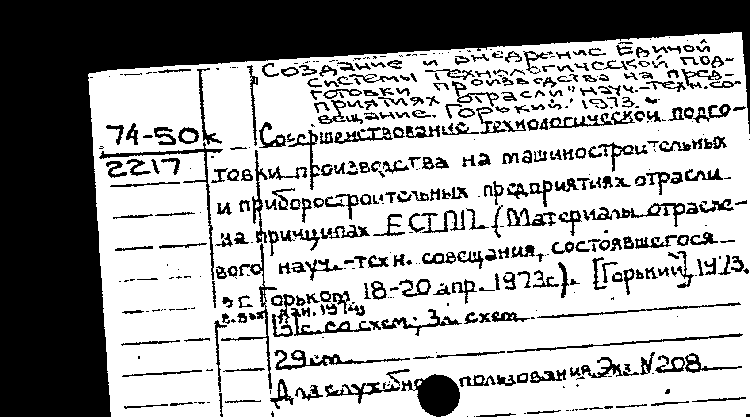 "Создание и внедрение Единой
системы технологической под-
готовки производства на пред-
приятиях отрасли" науч.-техн. со-
вещание. Горький. 1973.
74-50к
2217
Совершенствование технологической подго-
товки производства на машиностроительных
и приборостроительных предприятиях отрасли
на принципах ЕСТПП. (Материалы отрасле-
вого науч.-техн. совещания, состоявшегося
в г. Горьком 18-20 апр. 1973г.). [Горький], 1973.
151с. со схем; 3л. схем.
29см.
Для служебно пользования. Экз. N208.